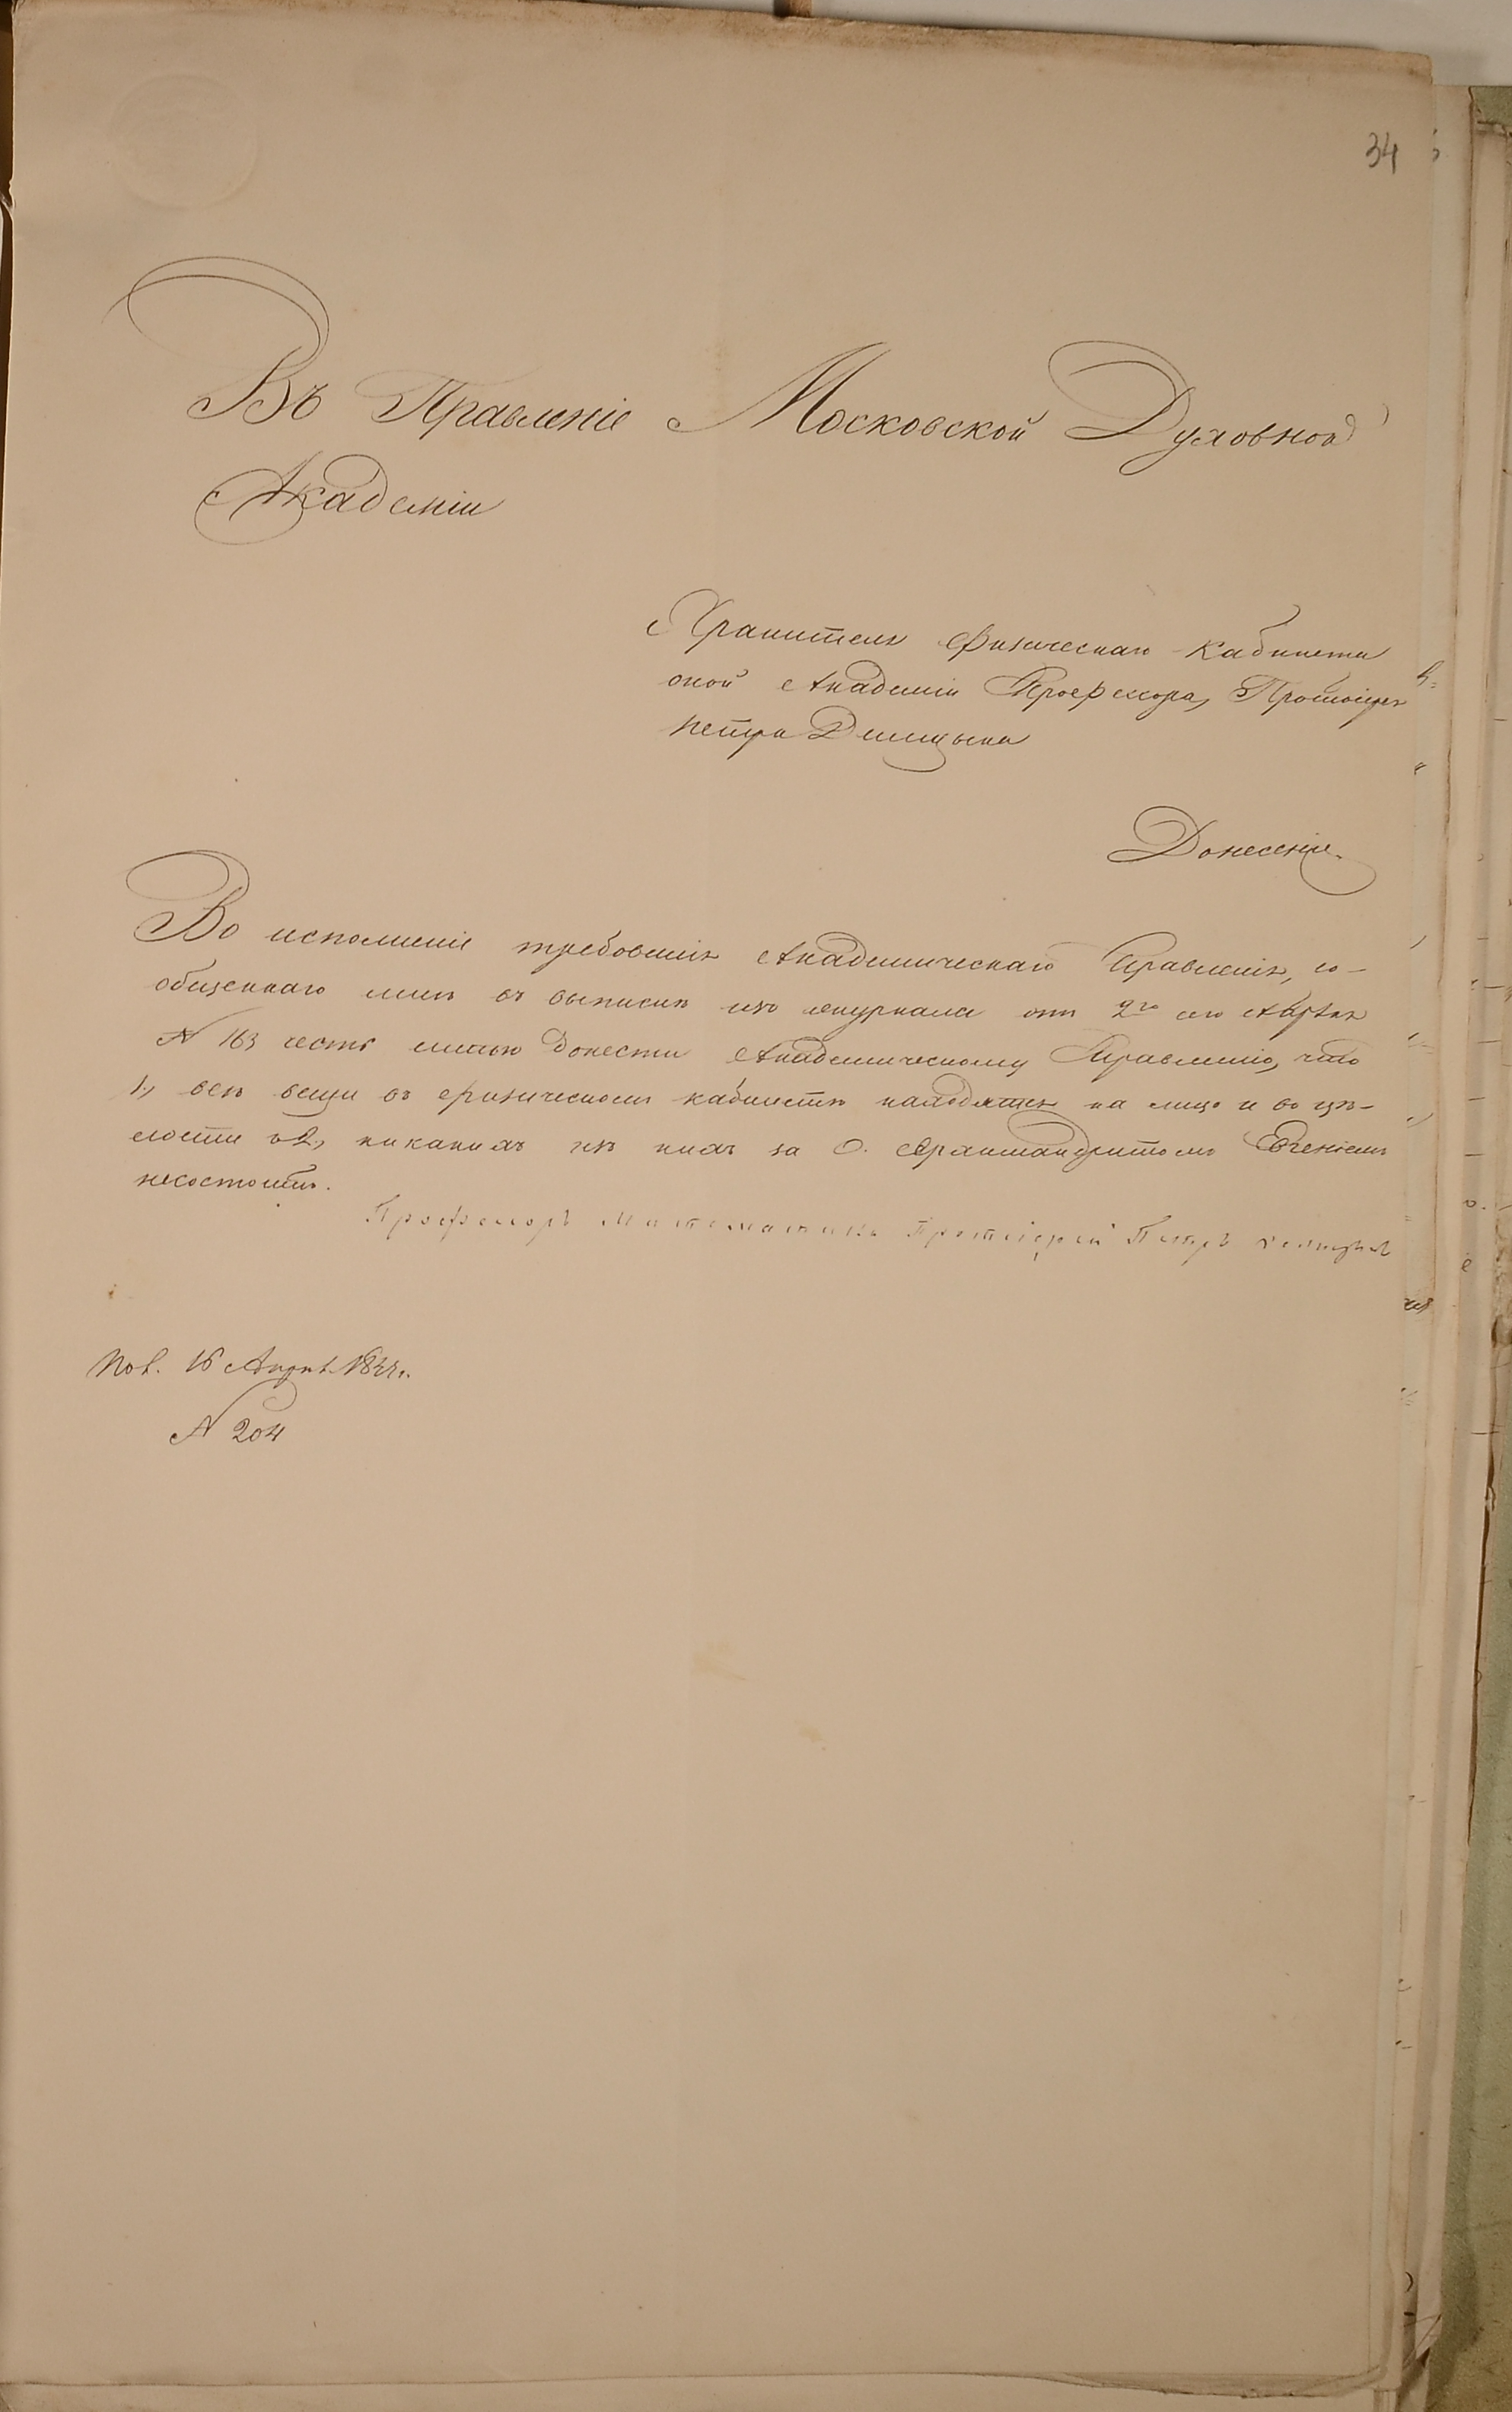 34
Въ Правленіе Московской Духовной
Академіи
Хранителя Физическаго Кабинета
оной Академіи Профессора, Протоіерея
Петра Делицына
Донесеніе.
Во исполненіе требованія Академическаго Правленія, со-
общеннаго мнѣ въ выпискѣ изъ журнала отъ 2го сего
№ 163 честь имѣю донести Академическому Правленію, что
1., всѣ вещи въ физическомъ кабинетѣ находятся на лицо и въ цѣ-
лости и 2., никакихъ изъ нихъ за О. Архимандритомъ Евгеніемъ
несостоитъ.
Профессоръ Математики Протоіерей Петръ Делицынъ
16
№ 204